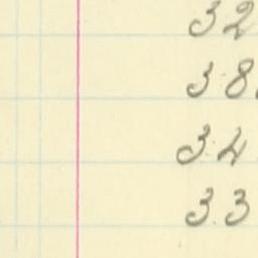 32
38
34
33